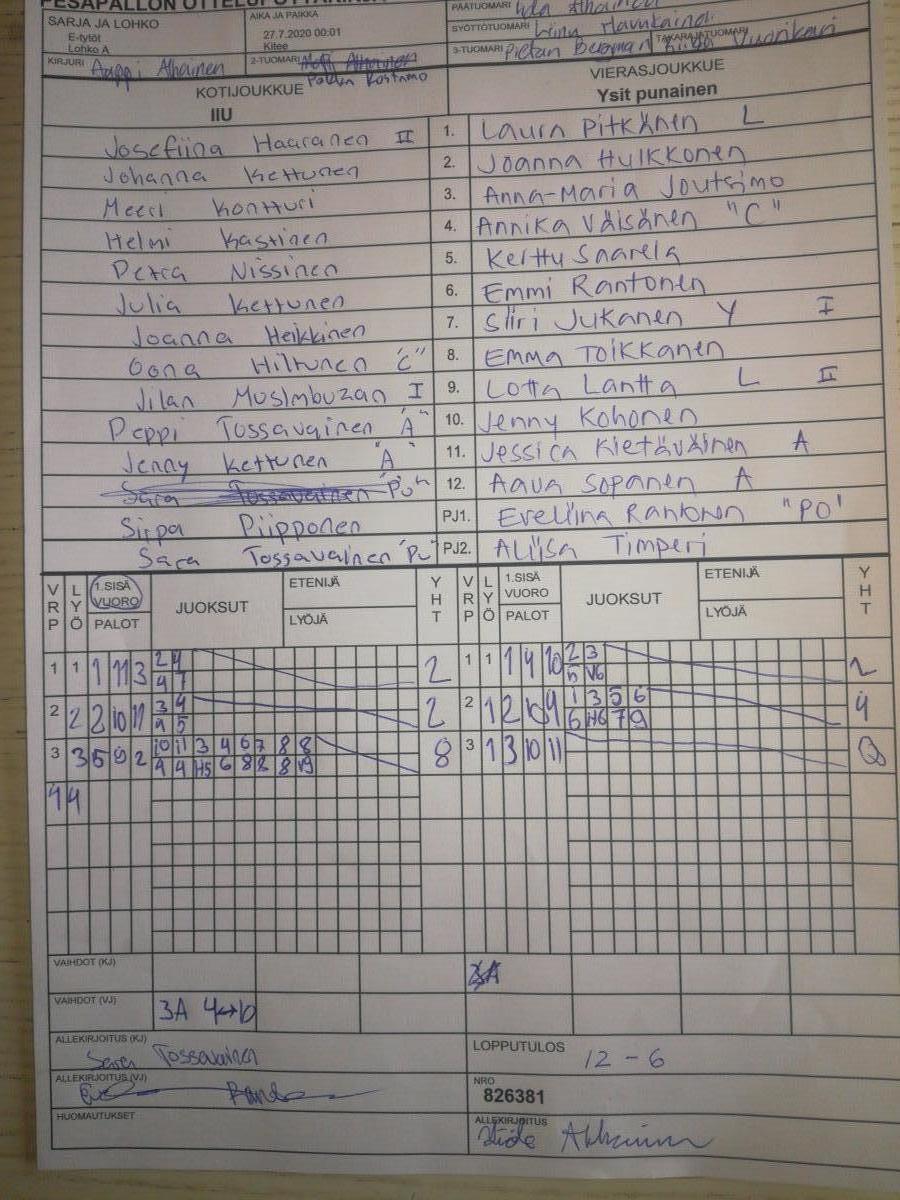 PESAPALLON OTTELUPÖYTÄKIRJA
SARJA JA LOHKO
E-tytöt
Lohko A
AIKA JA PAIKKA
27.7.2020 00:01
Kitee
PÄÄTUOMARI
SYÖTTÖTUOMARI
KIRJURI Aappi Alhainen
2-TUOMARI
3-TUOMARI
TAKARAJATUOMARI
KOTIJOUKKUE
IIU
VIERASJOUKKUE
Ysit punainen
Josefiina Haaranen II 1. Laura Pitkänen L
Johanna Kettunen 2. Joanna Hulkkonen
Meeri Kontturi 3. Anna-Maria Joutsimo
Helmi Kastinen 4. Annika Väisänen "C"
Petra Nissinen 5. Kerttu Saarela
Julia Kettunen 6. Emmi Rantonen
Joanna Heikkinen 7. Siiri Jukanen Y I
Oona Hiltunen "C" 8. Emma Toikkanen
Jilan Musimbuzan I 9. Lotta Lantta L II
Peppi Tossavainen "A" 10. Jenny Kohonen
Jenny Kettunen "A" 11. Jessica Kietäväinen A
12. Aava Sopanen A
Sirpa Piipponen PJ1. Eveliina Rantonen "PO"
Sara Tossavainen "PJ" PJ2. Aliisa Timperi
VRP LYÖ 1.SISÄ VUORO PALOT JUOKSUT ETENIJÄ LYÖJÄ YHT VRP LYÖ 1.SISÄ VUORO PALOT JUOKSUT ETENIJÄ LYÖJÄ YHT
1 1 1 11 3 2 4 2 1 1 1 4 10 2 3 2
4 7 5 V6
2 2 2 10 11 3 4 2 2 12 10 9 1 3 5 6 4
4 5 6 H6 7 9
3 3 5 9 2 10 11 3 4 6 7 8 8 8 3 1 3 10 11 0
4 4 H5 6 8 8 8 V9
4 4
VAIHDOT (KJ)
VAIHDOT (VJ) 3A 4↔10
ALLEKIRJOITUS (KJ)
Sara Tossavainen
LOPPUTULOS 12 - 6
ALLEKIRJOITUS (VJ)
NRO
826381
HUOMAUTUKSET
ALLEKIRJOITUS